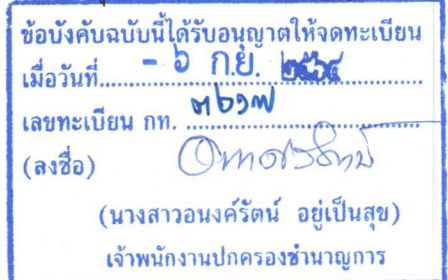 ข้อบังคับฉบับนี้ได้รับอนุญาตให้จดทะเบียน
เมื่อวันที่ - ๖ ก.ย. ๒๕๖๔
เลขทะเบียน กท. ๓๖๑๗
(ลงชื่อ)
(นางสาวอนงค์รัตน์ อยู่เป็นสุข)
เจ้าพนักงานปกครองชำนาญการ